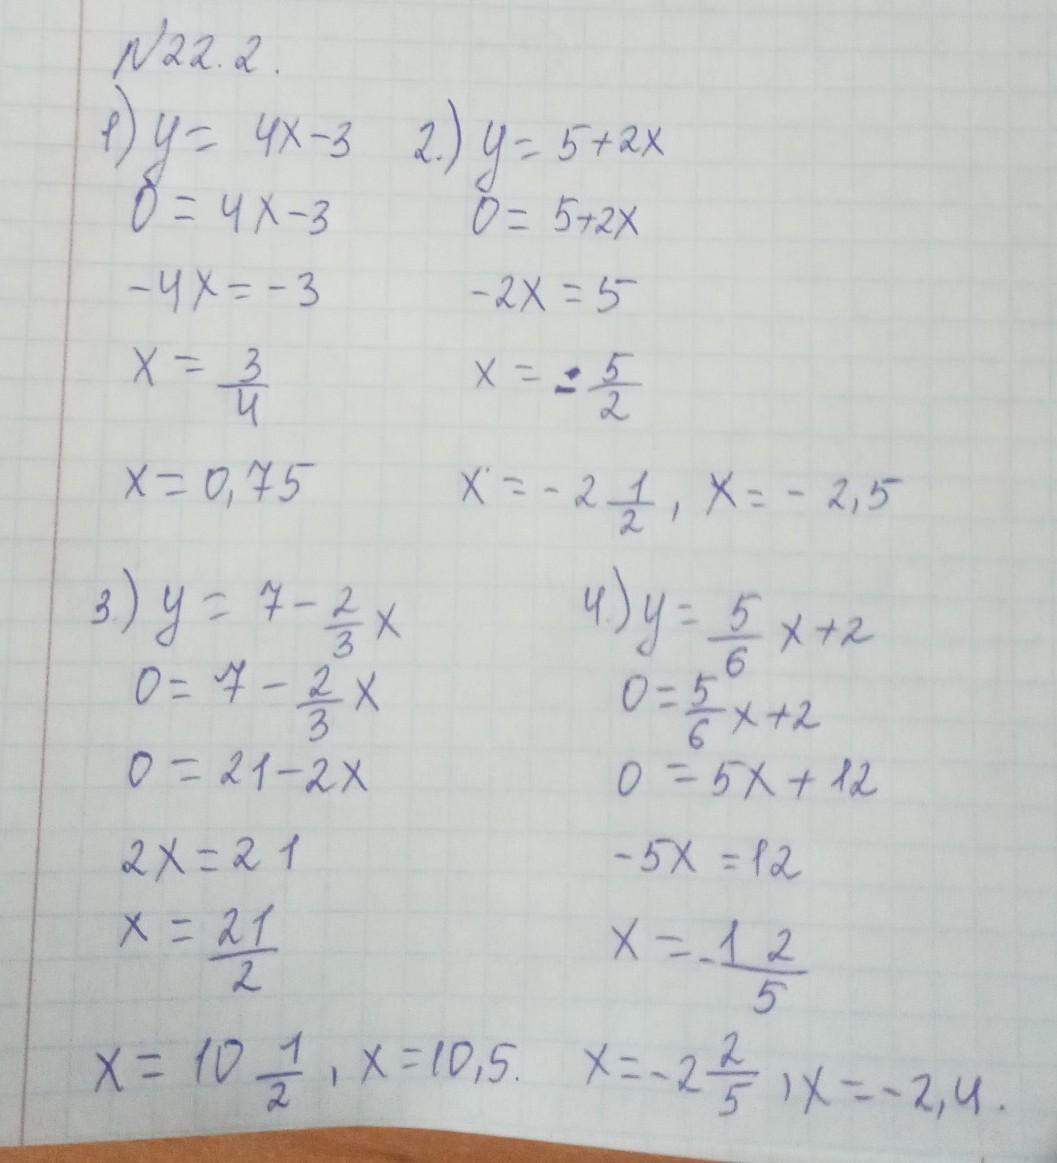 N22.2.
1) y = 4x-3
0 = 4x-3
-4x = -3
x = 3/4
x = 0,75
2.) y = 5+2x
0 = 5+2x
-2x = 5
x = - 5/2
x = -2 1/2, x = -2,5
3.) y = 7 - 2/3 x
0 = 7 - 2/3 x
0 = 21-2x
2x = 21
x = 21/2
x = 10 1/2, x = 10,5.
4.) y = 5/6 x+2
0 = 5/6 x+2
0 = 5x+12
-5x = 12
x = -12/5
x = -2 2/5, x = -2,4.